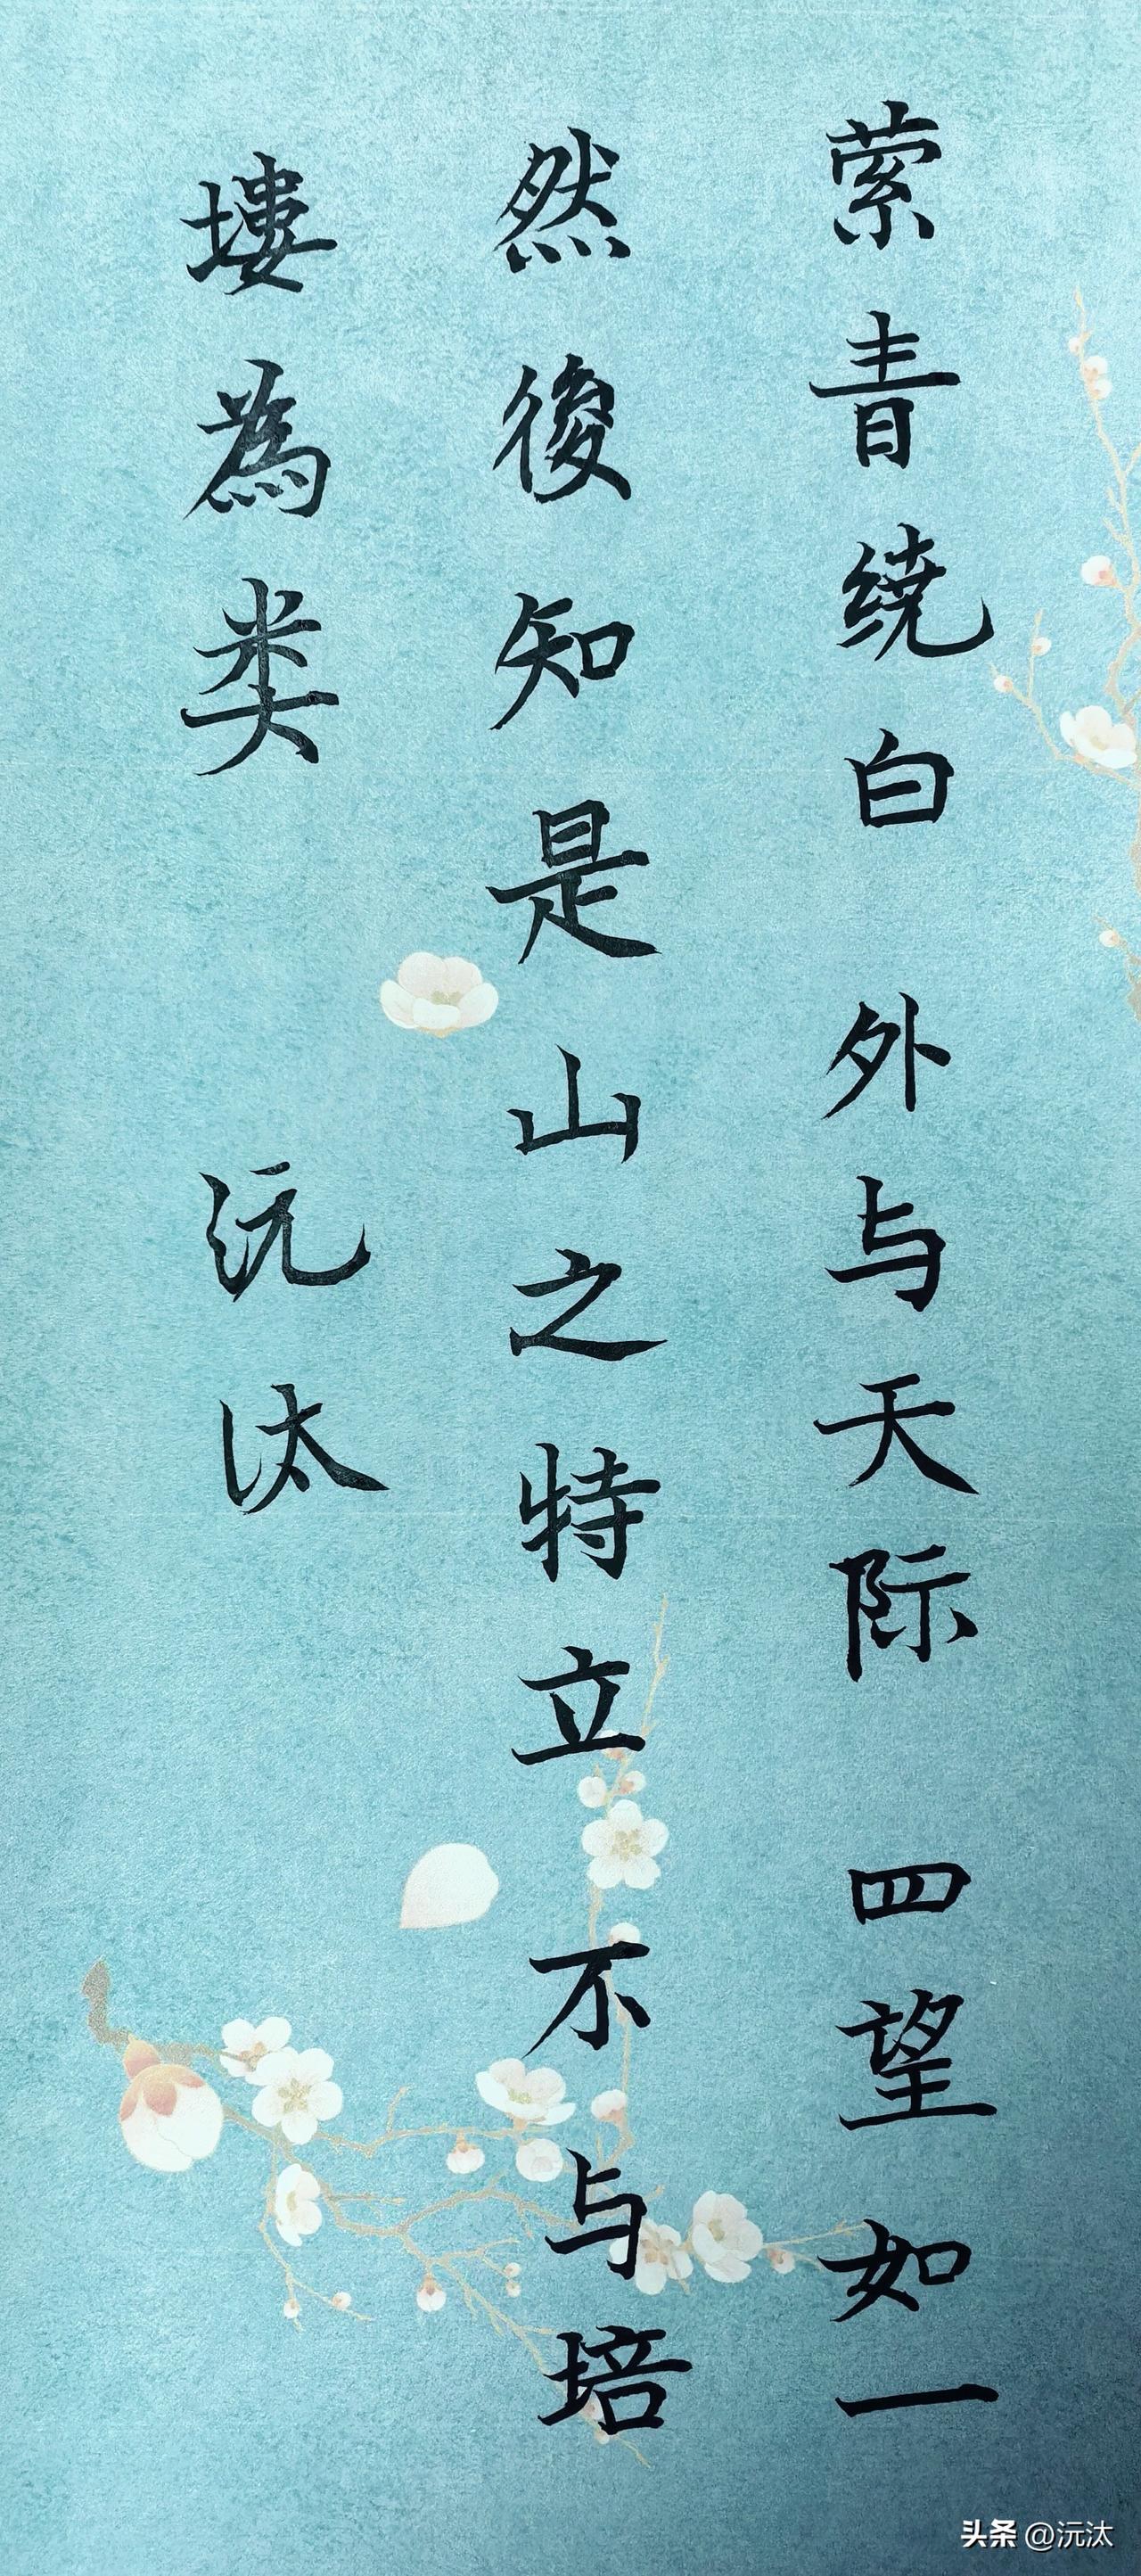 萦青绕白 外与天际 四望如一
然後知是山之特立 不与培
塿為类 沅汰
头条 @沅汰